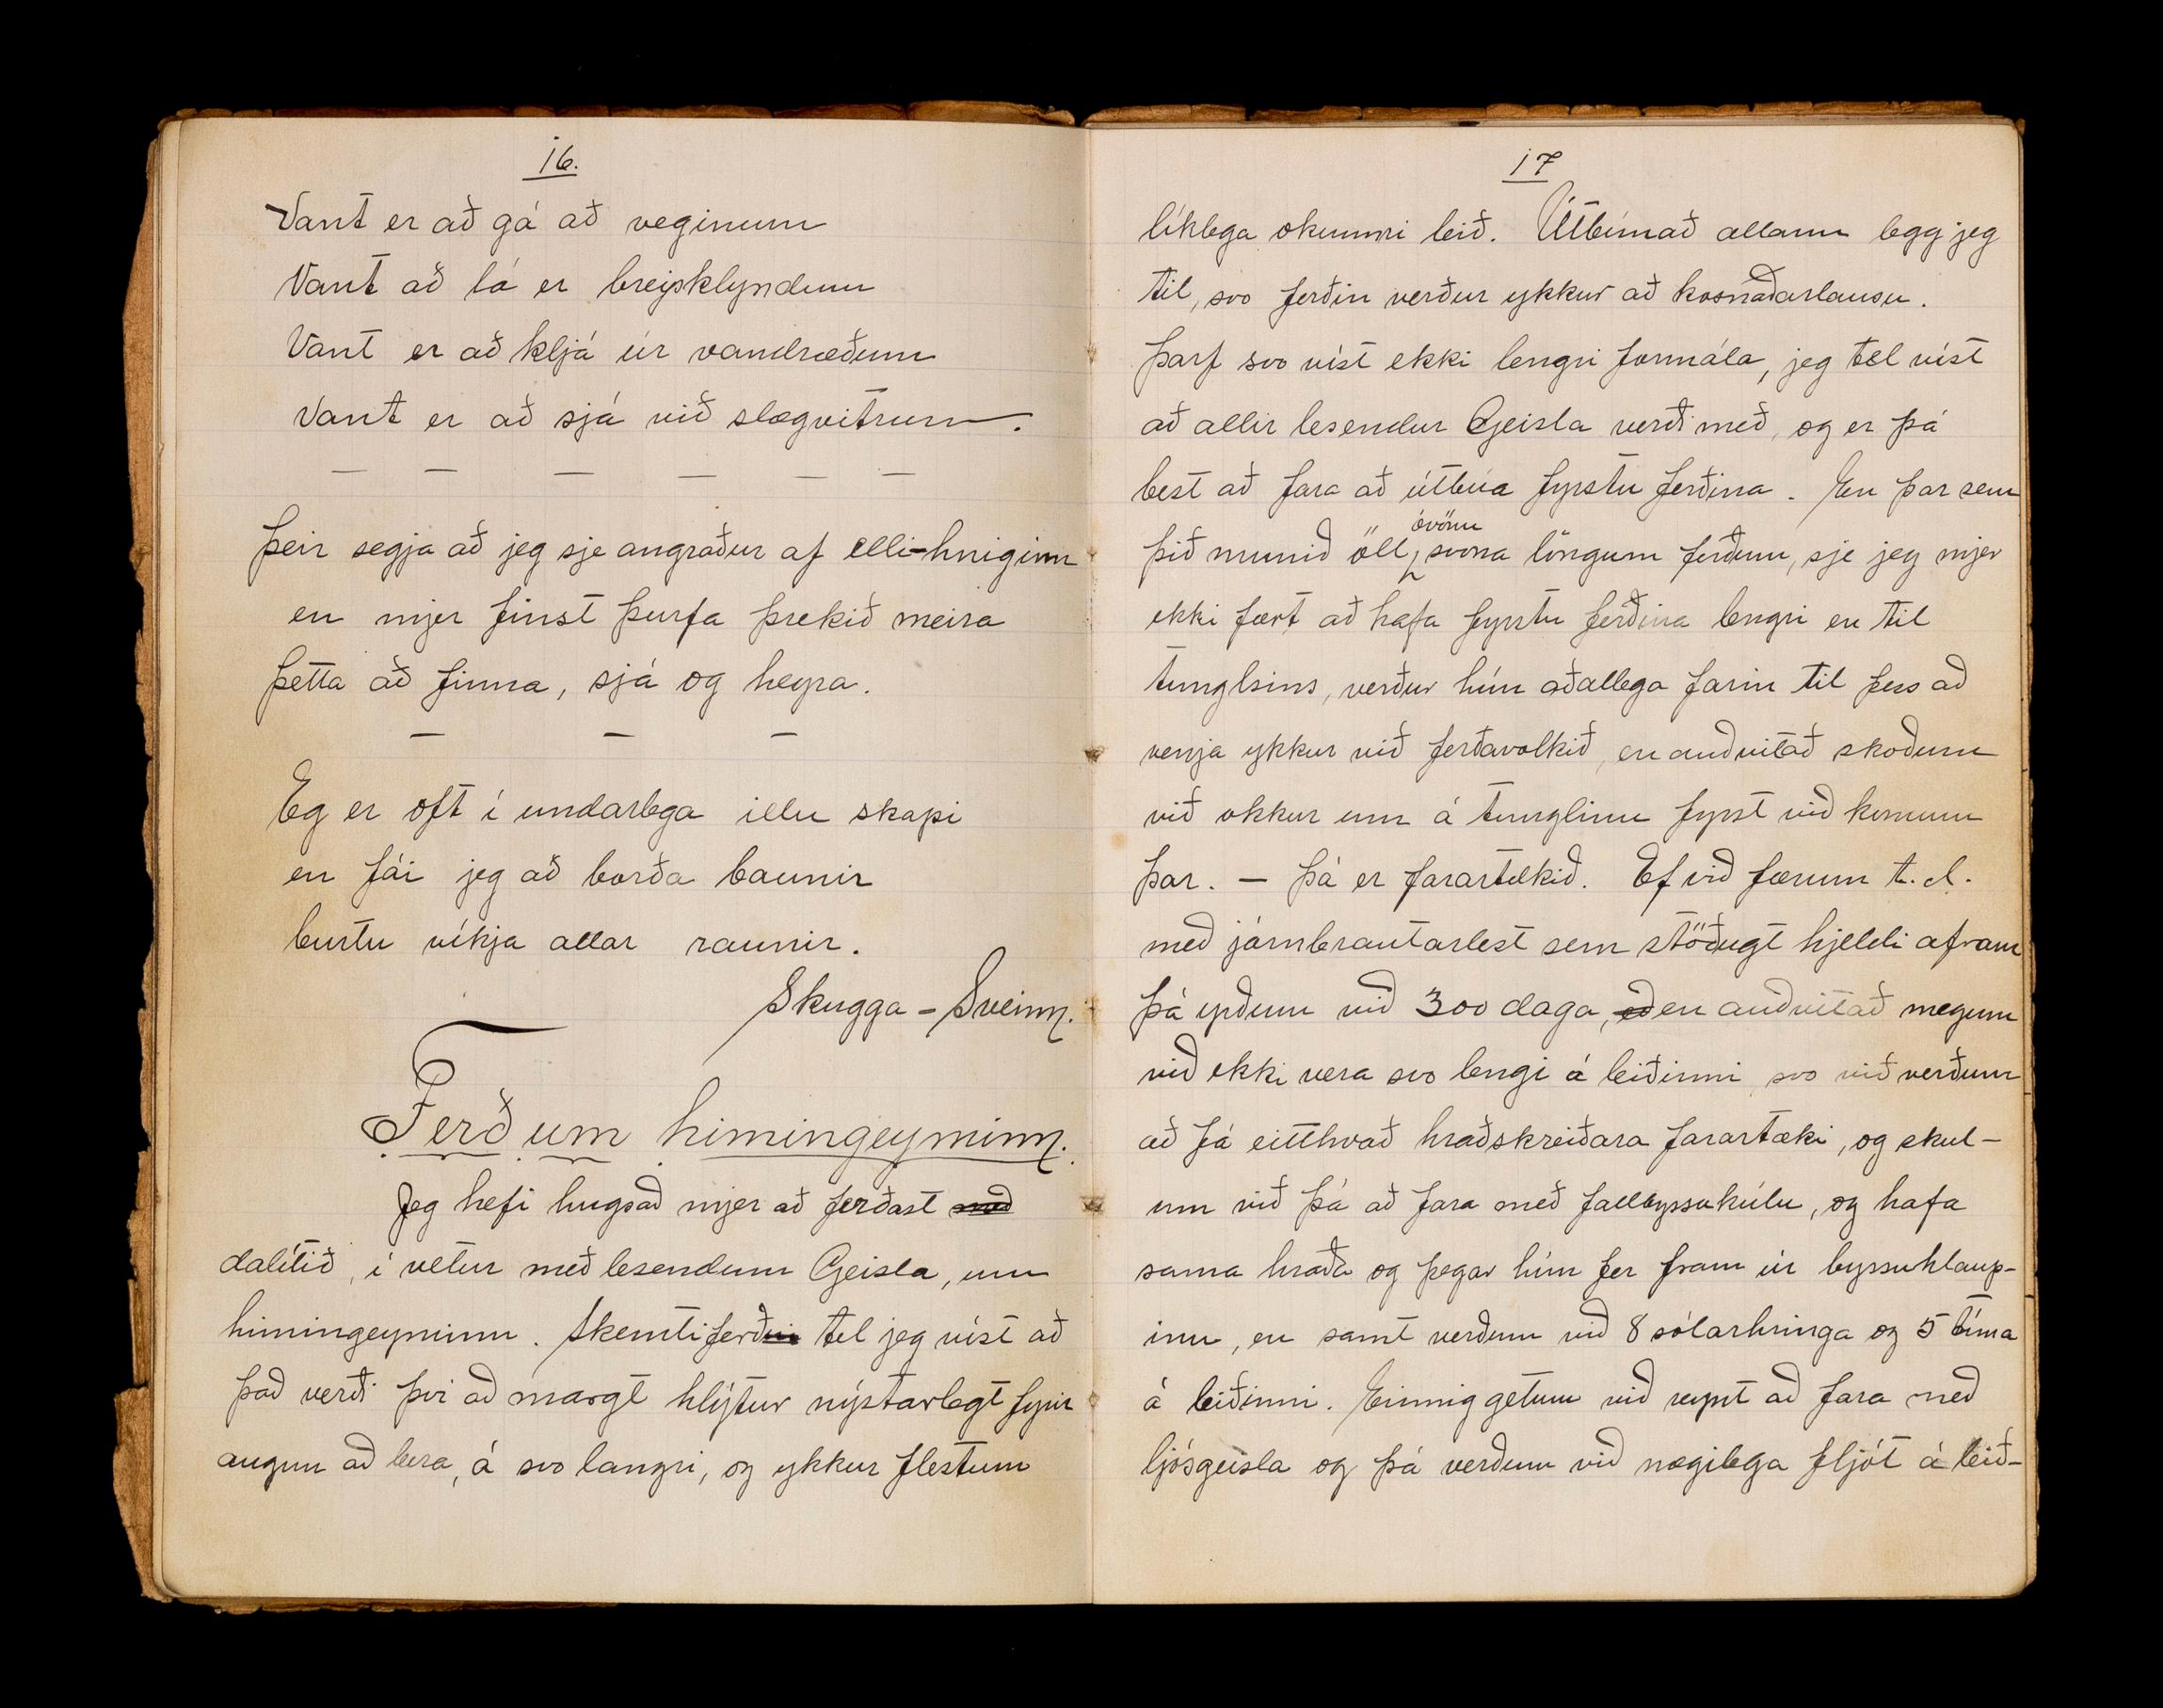 16.
Vant er að gá að veginum
Vant að lá er breysklyndum
Vant er að kljá úr vandræðum
Vant er að sjá við slægvitrum.
— — — — — —
Þeir segja að jeg sje angraður af elli-hniginn
en mjer finst þurfa þrekið meira
þetta að finna, sjá og heyra.
— — —
Eg er oft í undarlega illu skapi
en fái jeg að borða baunir
burtu víkja allar raunir.
Skugga-Sveinn.
Ferð um himingeyminn.
Jeg hefi hugsað mjer að ferðast með
dalítið, í vetur með lesendum Geisla, um
himingeyminn. Skemtiferð tel jeg víst að
það verði því að margt hlýtur nýstarlegt fyrir
augun að bera, á svo langri, og ykkur flestum
17
líklega okunnri leið. Útbúnað allann legg jeg
til, svo ferðin verður ykkur að kosnaðarlausu.
Þarf svo víst ekki lengri formála, jeg tel víst
að allir lesendur Geisla verði með, og er þá
best að fara að útbúa fyrstu ferðina. En þar sem
þið munið öll óvön svona löngum ferðum, sje jeg mjer
ekki fært að hafa fyrstu ferðina lengri en til
tunglsins, verður hún aðallega farin til þess að
venja ykkur við ferðavolkið, en auðvitað skoðum
við okkur um á tunglinu fyrst við komum
þar. — Þá er farartækið. Ef við færum t.d.
með járnbrautarlest sem stöðugt hjeldi afram
þá yrðum við 300 daga, eð en auðvitað megum
við ekki vera svo lengi á leiðinni svo við verðum
að fá eitthvað hraðskreiðara farartæki, og skul-
um við þá að fara með fallbyssukúlu, og hafa
sama hraða og þegar hún fer fram úr byssuhlaup-
inu, en samt verðum við 8 sólarhringa og 5 tíma
á leiðinni. Einnig getum við reynt að fara með
ljósgeisla og þá verðum við nægilega fljót á leið-